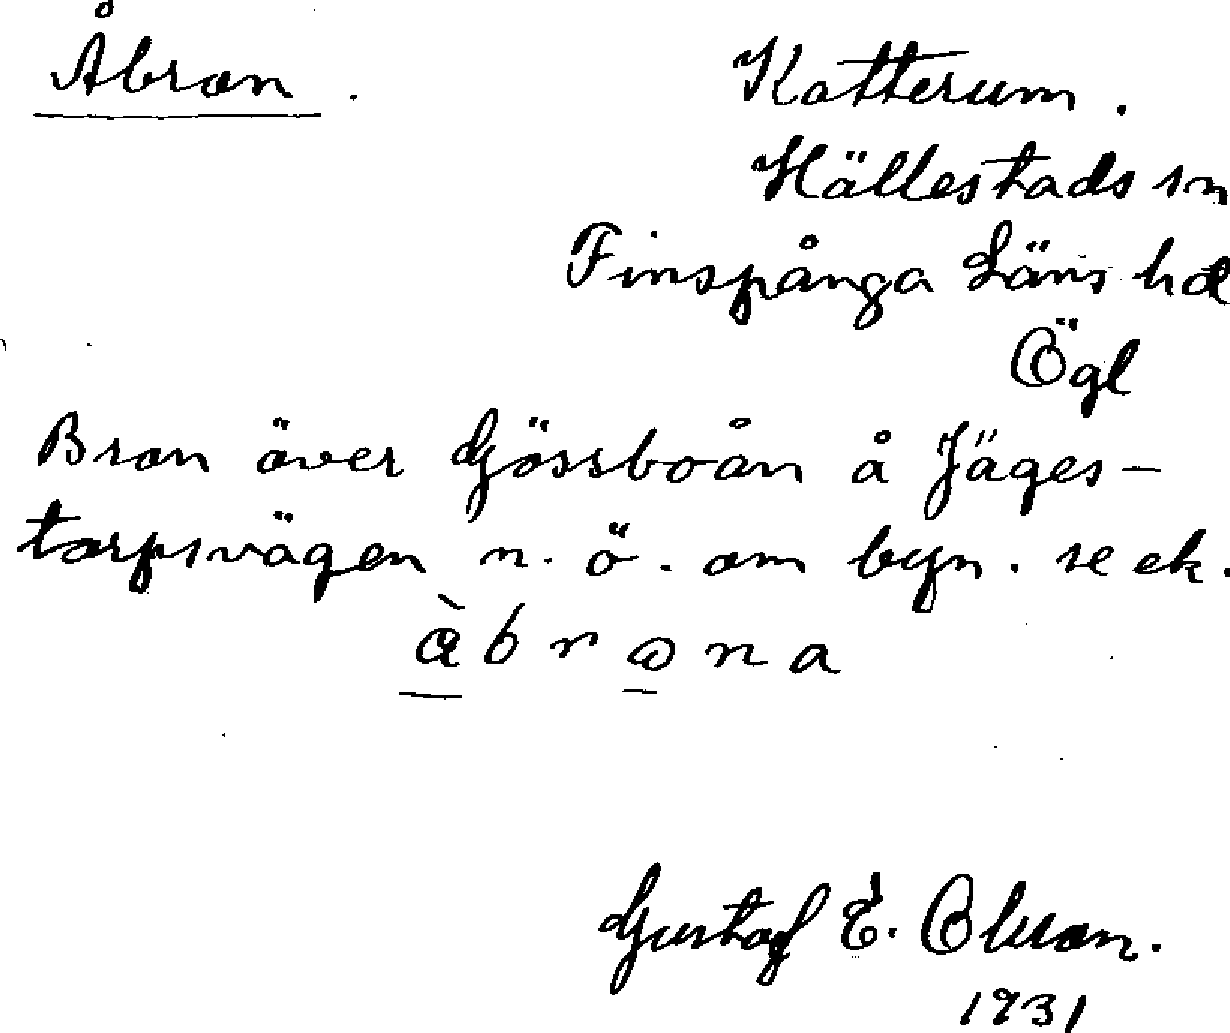 Åbron.
Katterum.
Hällestads sn
Finspånga Läns hd
Ögl
Bron över Gössboån å Jäges-
torpsvägen n. ö. om byn. se ek.
åbrona
Gustaf E. Olsson.
1931